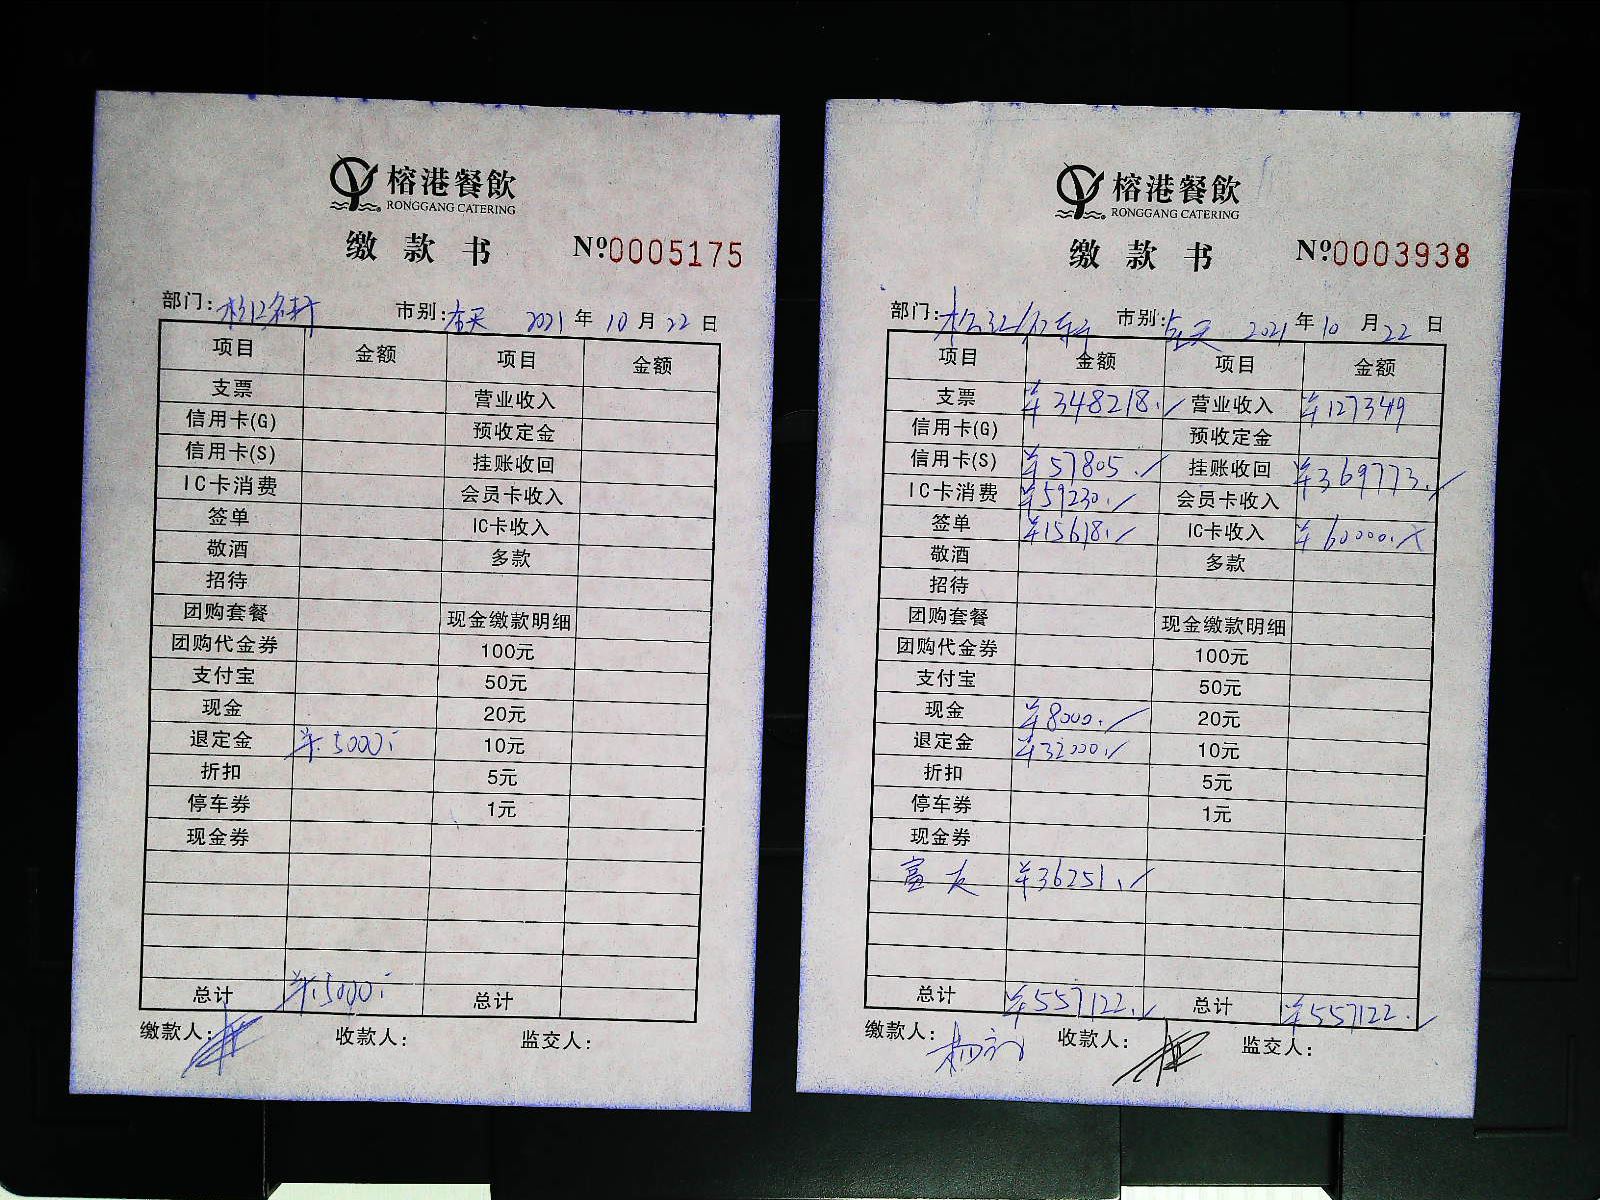 榕港餐飲
RONGGANG CATERING
缴款书 Nº0005175
部门: 松江名轩 市别: 全天 2021年10月22日
项目 金额 项目 金额
支票 营业收入
信用卡(G) 预收定金
信用卡(S) 挂账收回
IC卡消费 会员卡收入
签单 IC卡收入
敬酒 多款
招待
团购套餐 现金缴款明细
团购代金券 100元
支付宝 50元
现金 20元
退定金 ¥5000 10元
折扣 5元
停车券 1元
现金券
总计 ¥5000 总计
缴款人: 收款人: 监交人:
榕港餐飲
RONGGANG CATERING
缴款书 Nº0003938
部门: 松江名轩 市别: 全天 2021年10月22日
项目 金额 项目 金额
支票 ¥348218. 营业收入 ¥127349
信用卡(G) 预收定金
信用卡(S) ¥57805. 挂账收回 ¥369773.
IC卡消费 ¥59230. 会员卡收入
签单 ¥15618. IC卡收入 ¥60000.
敬酒 多款
招待
团购套餐 现金缴款明细
团购代金券 100元
支付宝 50元
现金 ¥8000. 20元
退定金 ¥32000. 10元
折扣 5元
停车券 1元
现金券
富友 ¥36251.
总计 ¥557122. 总计 ¥557122.
缴款人: 收款人: 监交人: